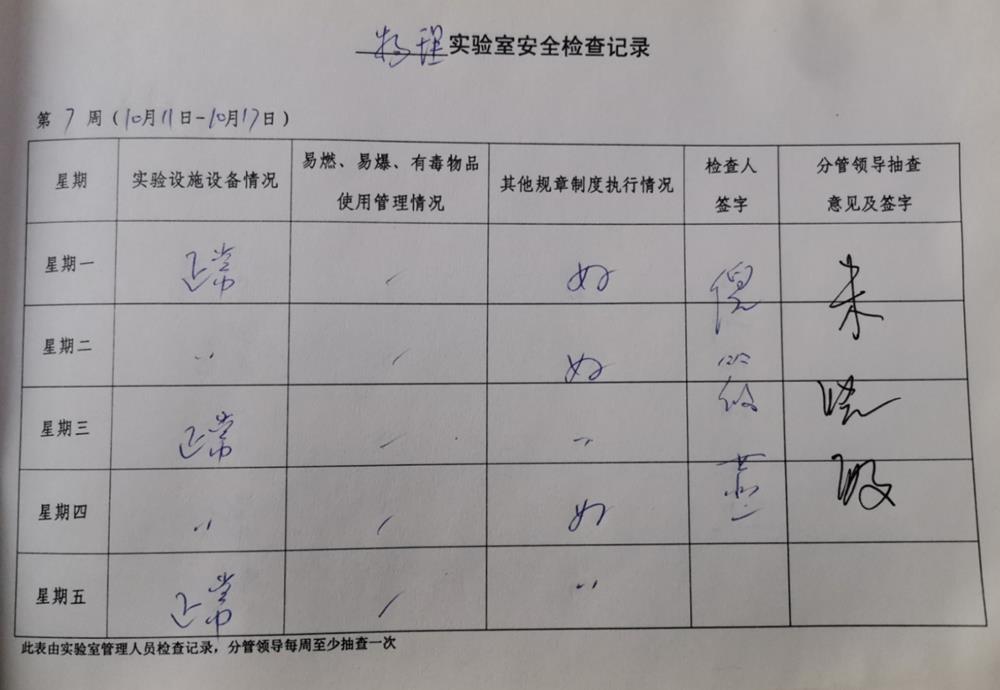 物理实验室安全检查记录
第 7 周（10月11日-10月17日）
星期 实验设施设备情况 易燃、易爆、有毒物品使用管理情况 其他规章制度执行情况 检查人签字 分管领导抽查意见及签字
星期一 正常 / 好 倪 朱
星期二 〃 / 好
星期三 正常 / 〃
星期四 〃 / 好
星期五 正常 / 〃
此表由实验室管理人员检查记录，分管领导每周至少抽查一次